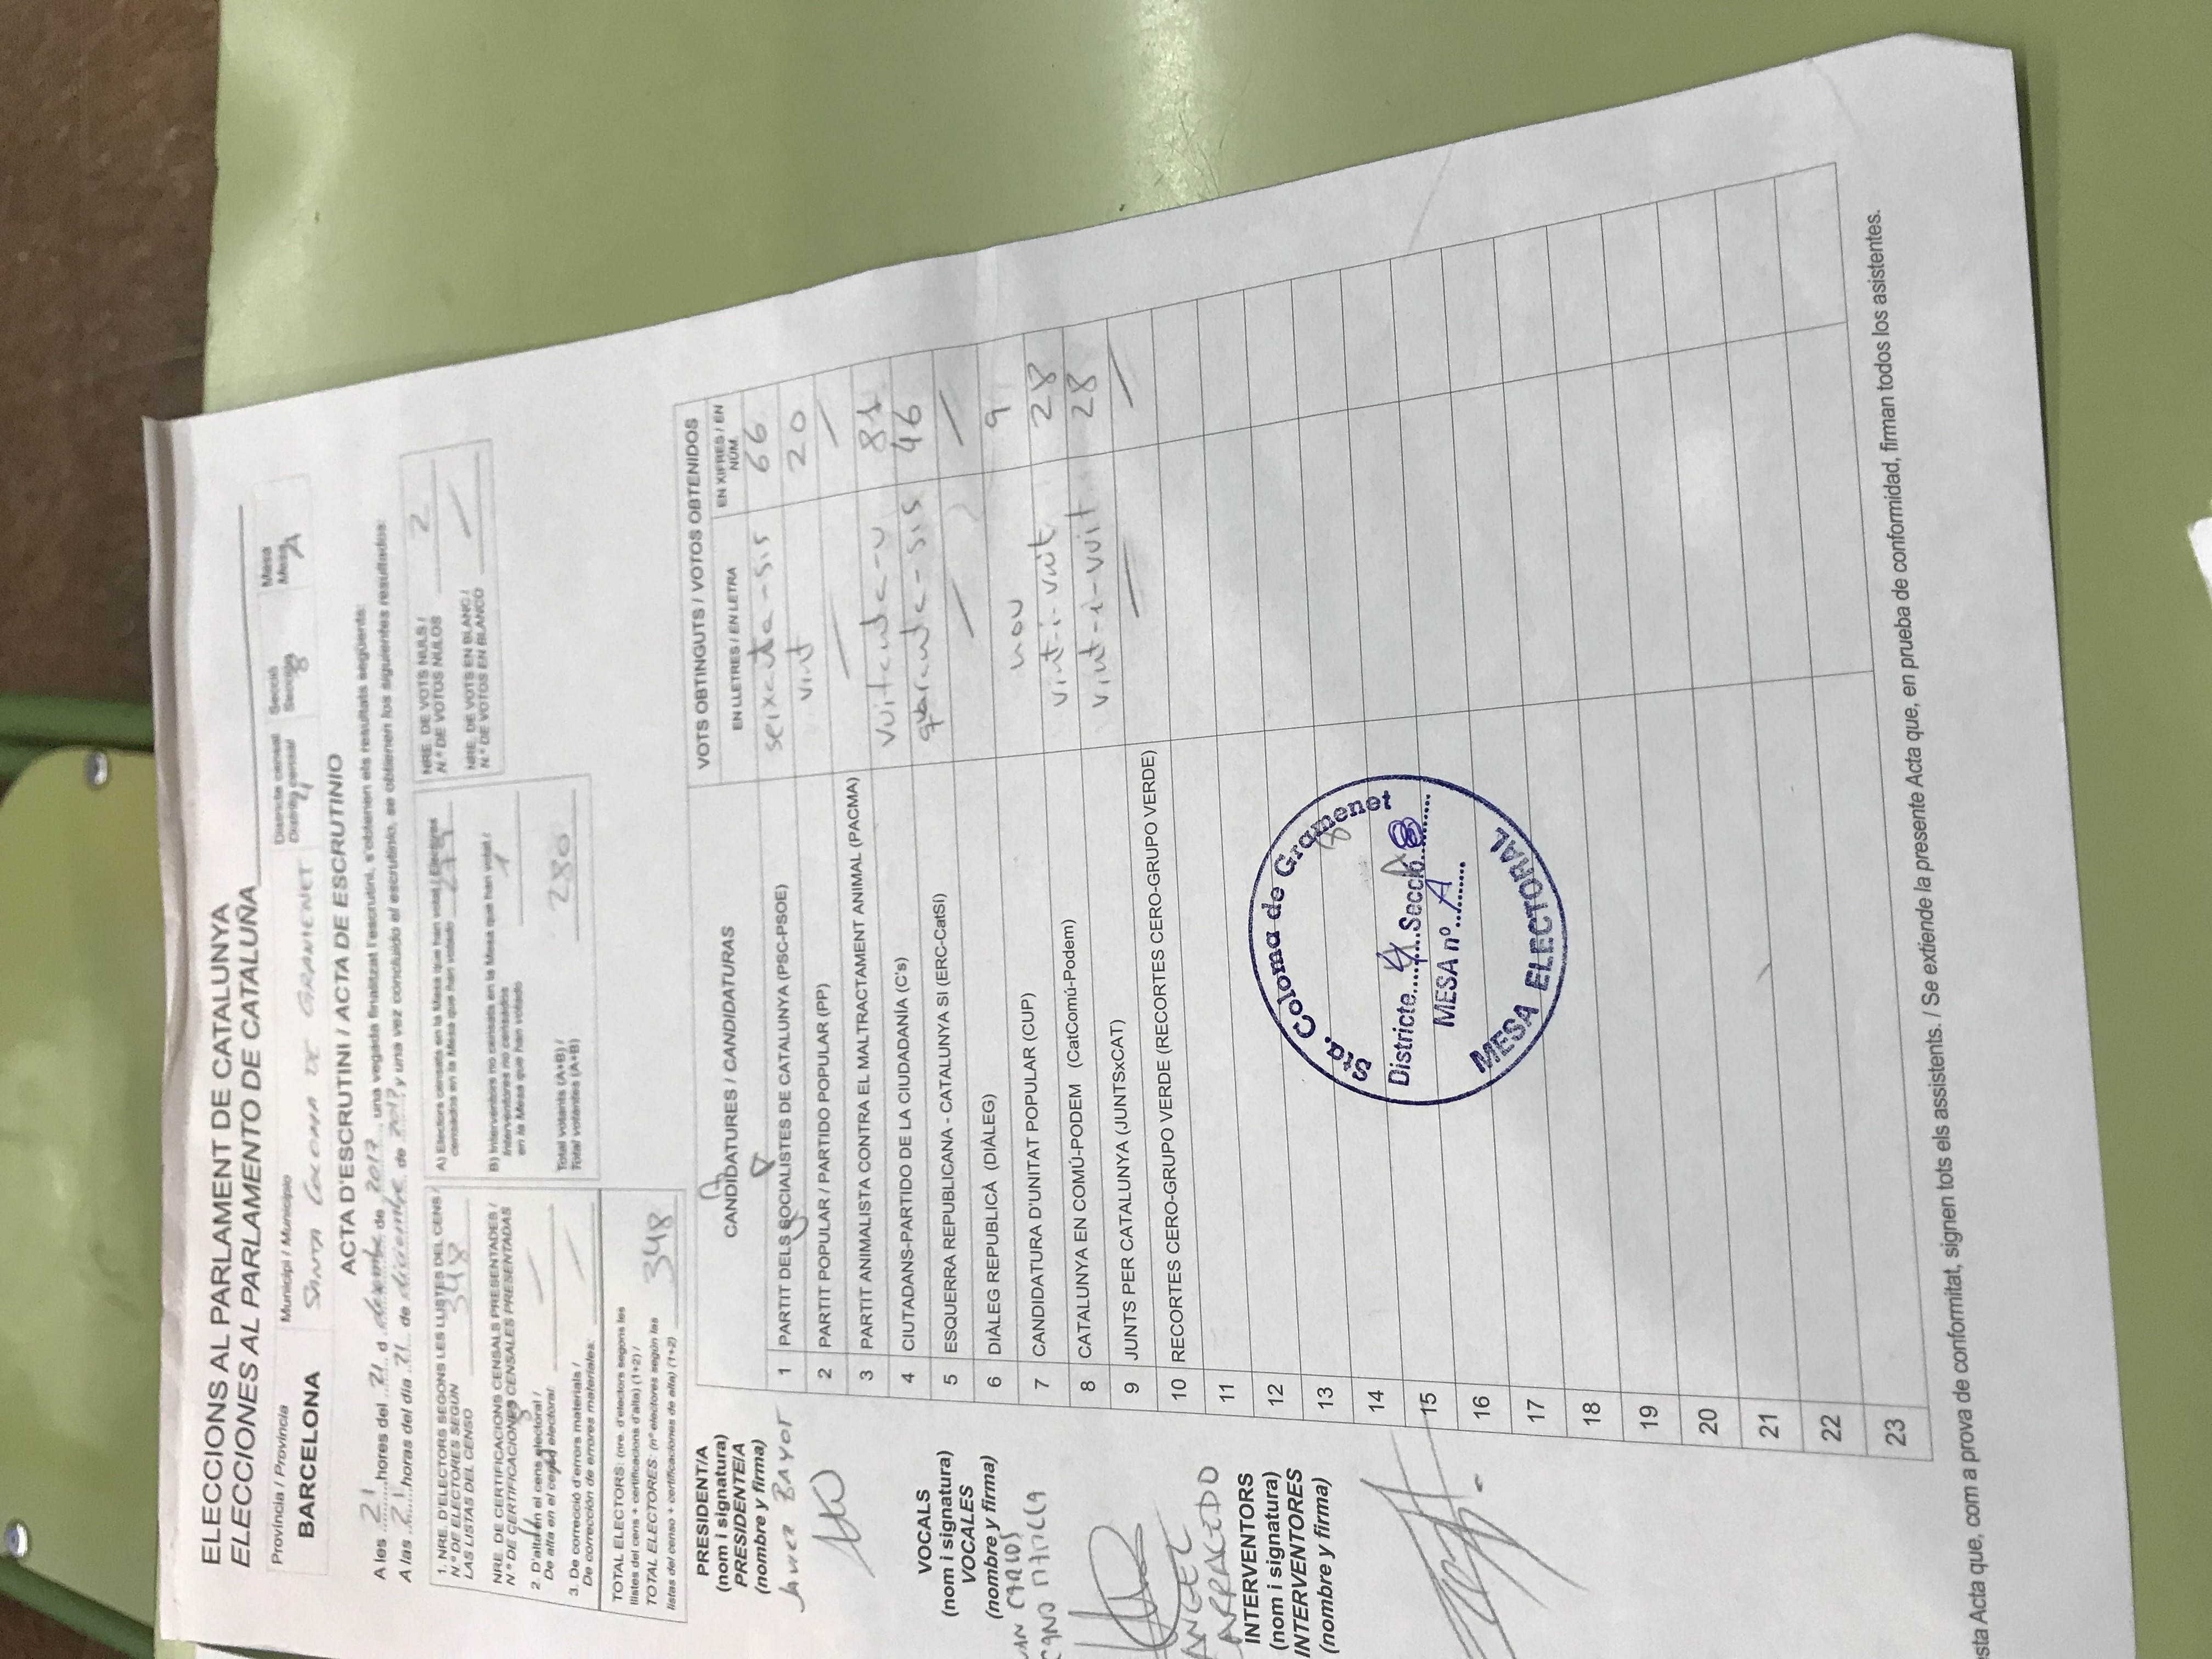 ELECCIONS AL PARLAMENT DE CATALUNYA
ELECCIONES AL PARLAMENTO DE CATALUÑA
Província / Provincia
BARCELONA
Municipi / Municipio
SANTA COLOMA DE GRAMENET
Districte censal
Distrito censal
4
Secció
Sección
8
Mesa
Mesa
A
ACTA D'ESCRUTINI / ACTA DE ESCRUTINIO
A les 21 hores del 21 d desembre de 2017, una vegada finalitzat l'escrutini, s'obtenen els resultats següents:
A las 21 horas del día 21 de diciembre de 2017 y una vez concluido el escrutinio, se obtienen los siguientes resultados:
1. NRE. D'ELECTORS SEGONS LES LLISTES DEL CENS /
N.º DE ELECTORES SEGÚN
LAS LISTAS DEL CENSO 348
NRE. DE CERTIFICACIONS CENSALS PRESENTADES /
N.º DE CERTIFICACIONES CENSALES PRESENTADAS
2. D'alta en el cens electoral /
De alta en el censo electoral:
3. De correcció d'errors materials /
De corrección de errores materiales:
TOTAL ELECTORS: (nre. d'electors segons les
llistes del cens + certificacions d'alta) (1+2) /
TOTAL ELECTORES: (nº electores según las
listas del censo + certificaciones de alta) (1+2) 348
A) Electors censats en la Mesa que han votat / Electores
censados en la Mesa que han votado 279
B) Interventors no censats en la Mesa que han votat /
Interventores no censados
en la Mesa que han votado 1
Total votants (A+B) /
Total votantes (A+B) 280
NRE. DE VOTS NULS /
N.º DE VOTOS NULOS 2
NRE. DE VOTS EN BLANC /
N.º DE VOTOS EN BLANCO
PRESIDENT/A
(nom i signatura)
PRESIDENTE/A
(nombre y firma)
JAVIER BAYOT
VOCALS
(nom i signatura)
VOCALES
(nombre y firma)
CARLOS
ANGEL
ARRACEDO
INTERVENTORS
(nom i signatura)
INTERVENTORES
(nombre y firma)
CANDIDATURES / CANDIDATURAS
VOTS OBTINGUTS / VOTOS OBTENIDOS
EN LLETRES / EN LETRA
EN XIFRES / EN NÚM.
1 PARTIT DELS SOCIALISTES DE CATALUNYA (PSC-PSOE) seixanta-sis 66
2 PARTIT POPULAR / PARTIDO POPULAR (PP) vint 20
3 PARTIT ANIMALISTA CONTRA EL MALTRACTAMENT ANIMAL (PACMA)
4 CIUTADANS-PARTIDO DE LA CIUDADANÍA (C's) vuitanta-u 81
5 ESQUERRA REPUBLICANA - CATALUNYA SI (ERC-CatSí) quaranta-sis 46
6 DIÀLEG REPUBLICÀ (DIÀLEG)
7 CANDIDATURA D'UNITAT POPULAR (CUP) nou 9
8 CATALUNYA EN COMÚ-PODEM (CatComú-Podem) vint-i-vuit 28
9 JUNTS PER CATALUNYA (JUNTSxCAT) vint-i-vuit 28
10 RECORTES CERO-GRUPO VERDE (RECORTES CERO-GRUPO VERDE)
11
12
13
14
15
16
17
18
19
20
21
22
23
Sta. Coloma de Gramenet
Districte 4 Secció 8
MESA nº A
MESA ELECTORAL
esta Acta que, com a prova de conformitat, signen tots els assistents. / Se extiende la presente Acta que, en prueba de conformidad, firman todos los asistentes.